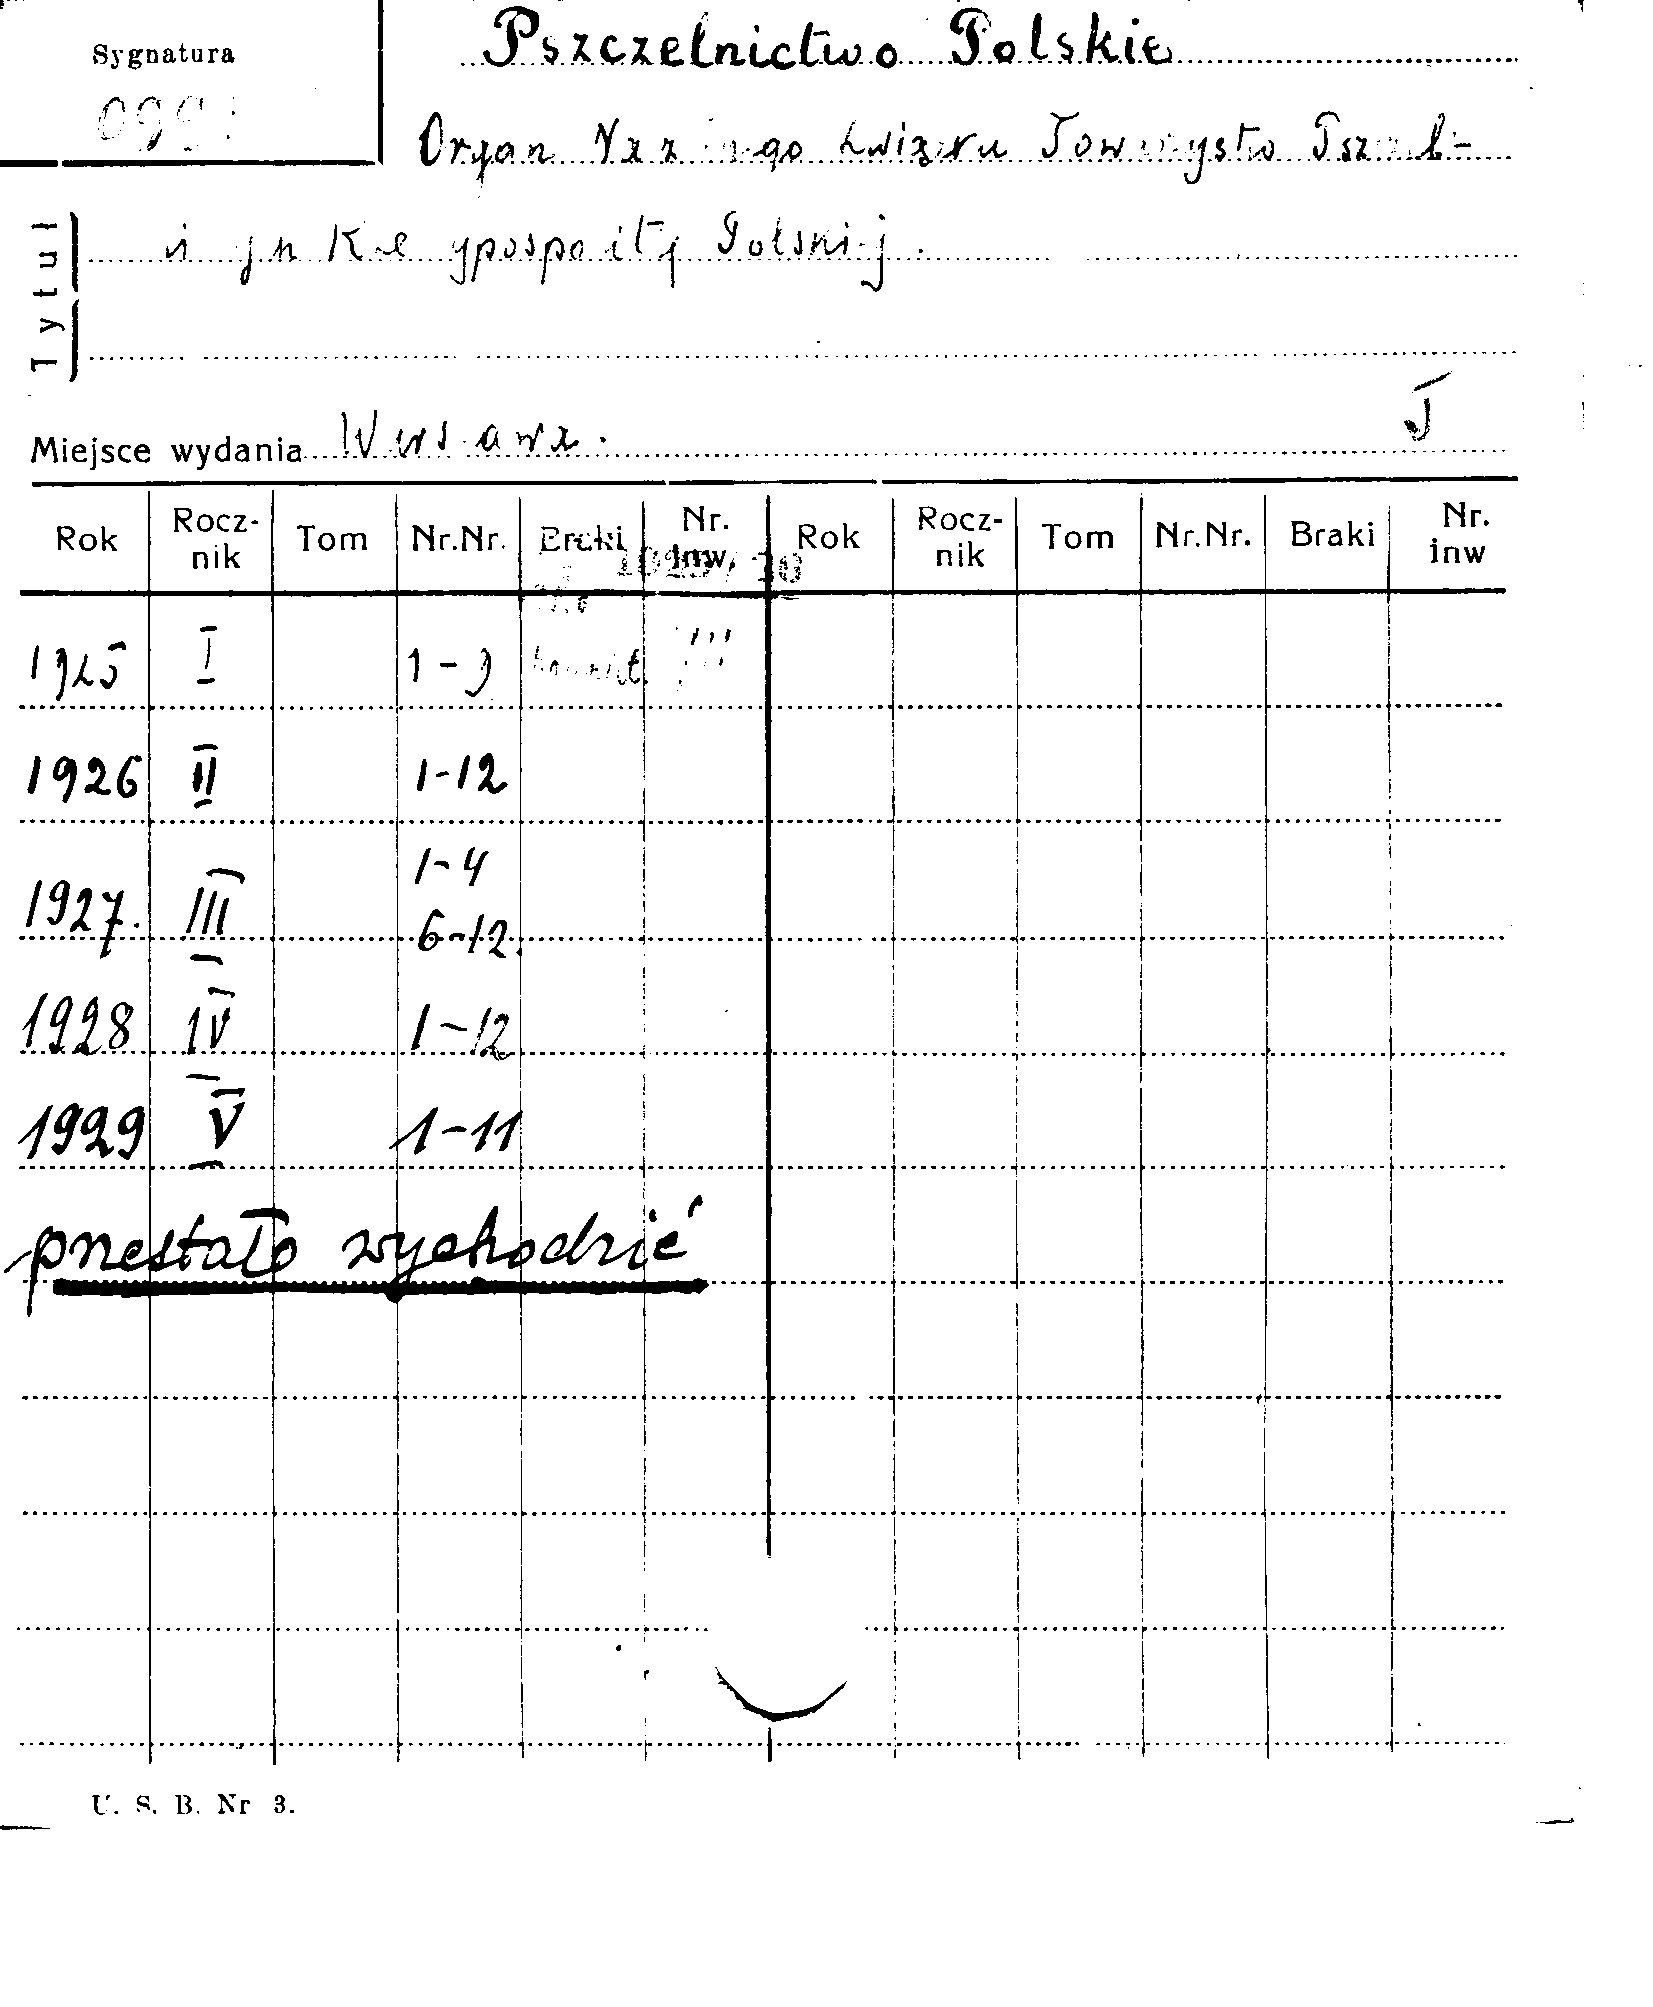 Sygnatura
Pszczelnictwo Polskie
Organ Związku Towarzystw
Polskiej.
Tytuł
Miejsce wydania Warszawa.
Rok Rocz-nik Tom Nr.Nr. Braki Nr. inw. Rok Rocz-nik Tom Nr.Nr. Braki Nr. inw
1925 I 1-9 komplet.
1926 II 1-12
1-4
1927. III 6-12.
1928 IV 1-12
1929 V 1-11
przestało wychodzić
U. S. B. Nr 3.